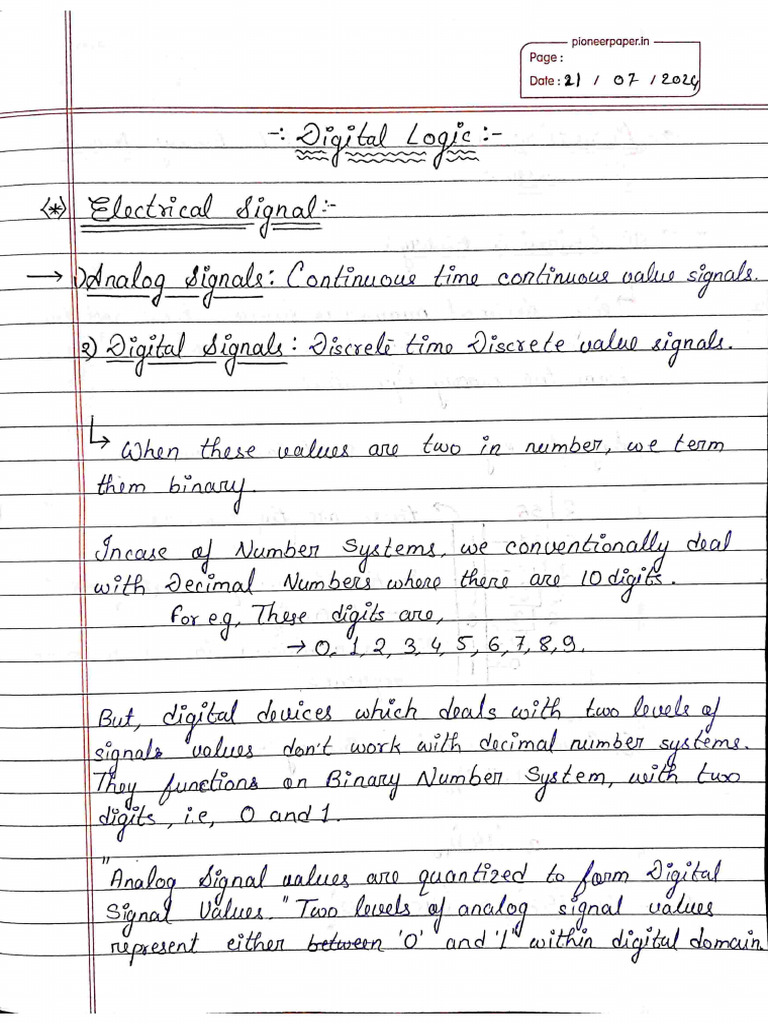 pioneerpaper.in
Page :
Date : 21 / 07 / 2024
-: Digital Logic :-
(*) Electrical Signal :-
→ 1) Analog Signals : Continuous time continuous value signals.
2) Digital Signals : Discrete time Discrete value signals.
↳ When these values are two in number, we term
them binary.
Incase of Number Systems, we conventionally deal
with Decimal Numbers where there are 10 digits.
for e.g, These digits are,
→ 0, 1, 2, 3, 4, 5, 6, 7, 8, 9.
But, digital devices which deals with two levels of
signals values don't work with decimal number systems.
They functions on Binary Number System, with two
digits, i.e, 0 and 1.
"Analog Signal values are quantized to form Digital
Signal Values." Two levels of analog signal values
represent either between '0' and '1' within digital domain.